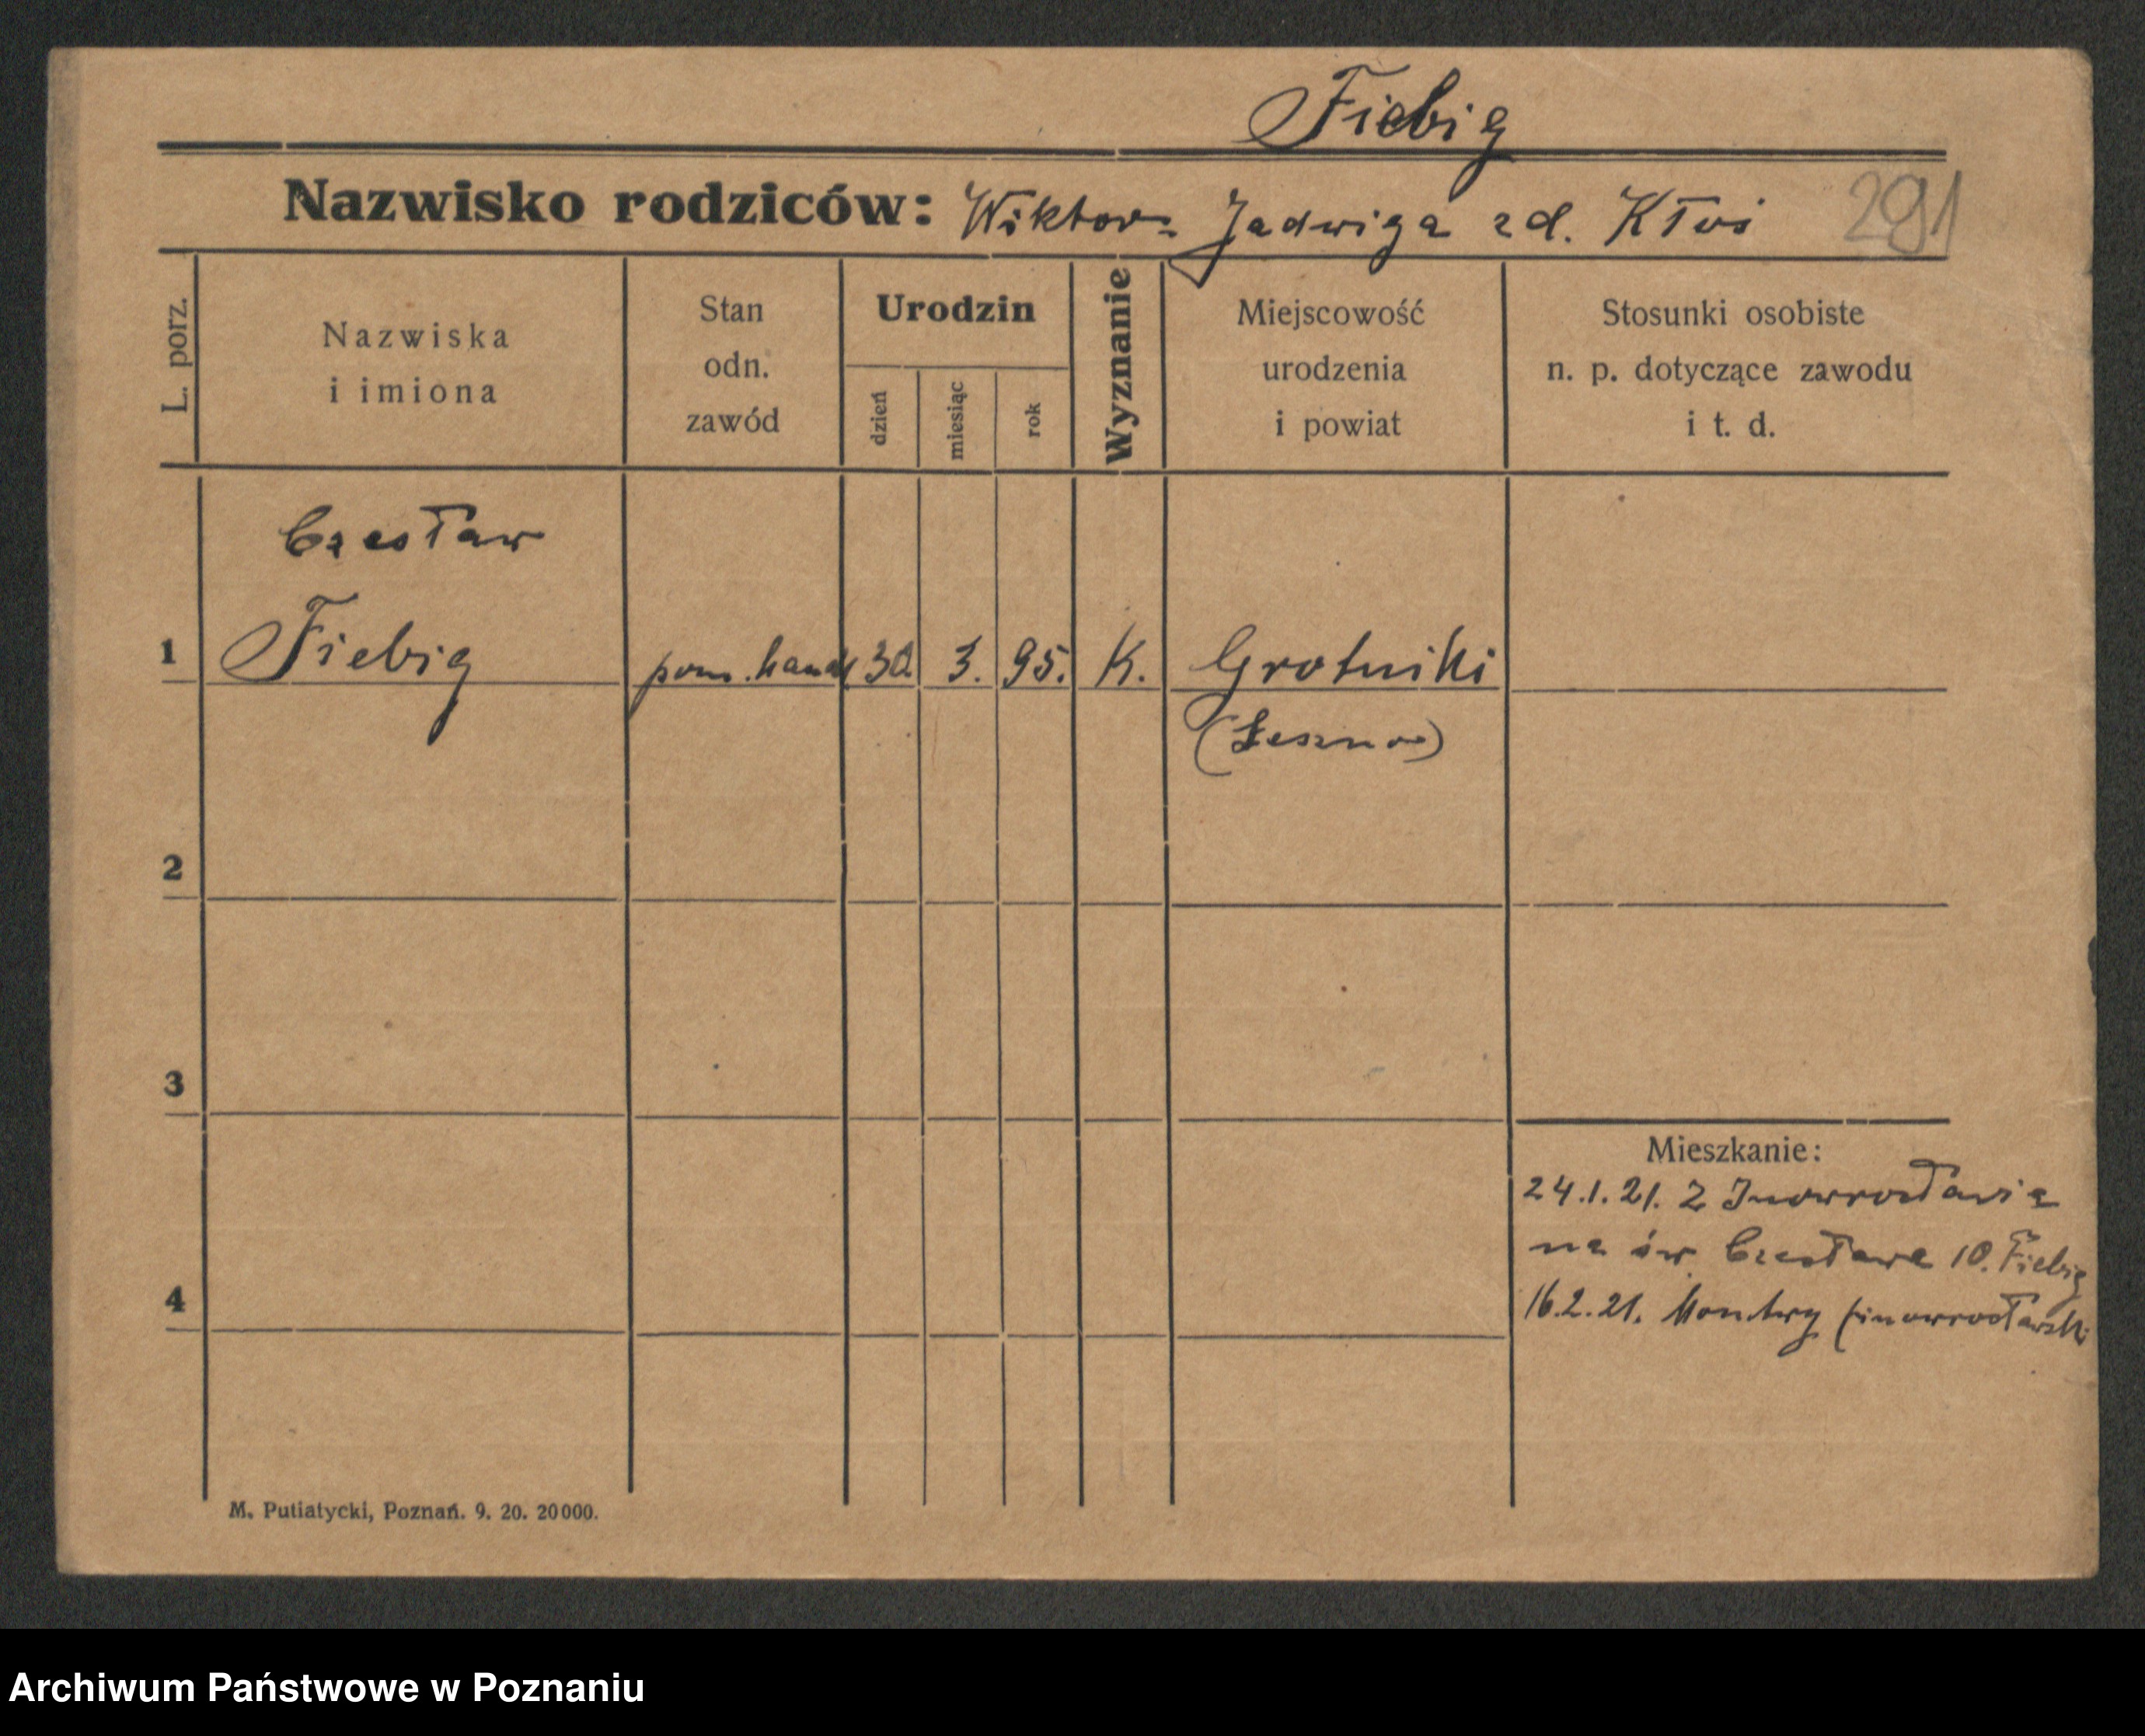 Fiebig
Nazwisko rodziców: Wiktor - Jadwiga zd. Kłoś 291
L. porz.
Nazwiska
i imiona
Stan
odn.
zawód
Urodzin
dzień
miesiąc
rok
Wyznanie
Miejscowość
urodzenia
i powiat
Stosunki osobiste
n. p. dotyczące zawodu
i t. d.
Czesław
1 Fiebig pom. handl 30. 3. 95. K. Grotniki
(Leszno)
2
3
4
Mieszkanie:
24.1.21. Z Inowrocławia
na św. Czesława 10. Fiebig
16.2.21. Montwy (inowrocławski
M. Putiatycki, Poznań. 9. 20. 20000.
Archiwum Państwowe w Poznaniu